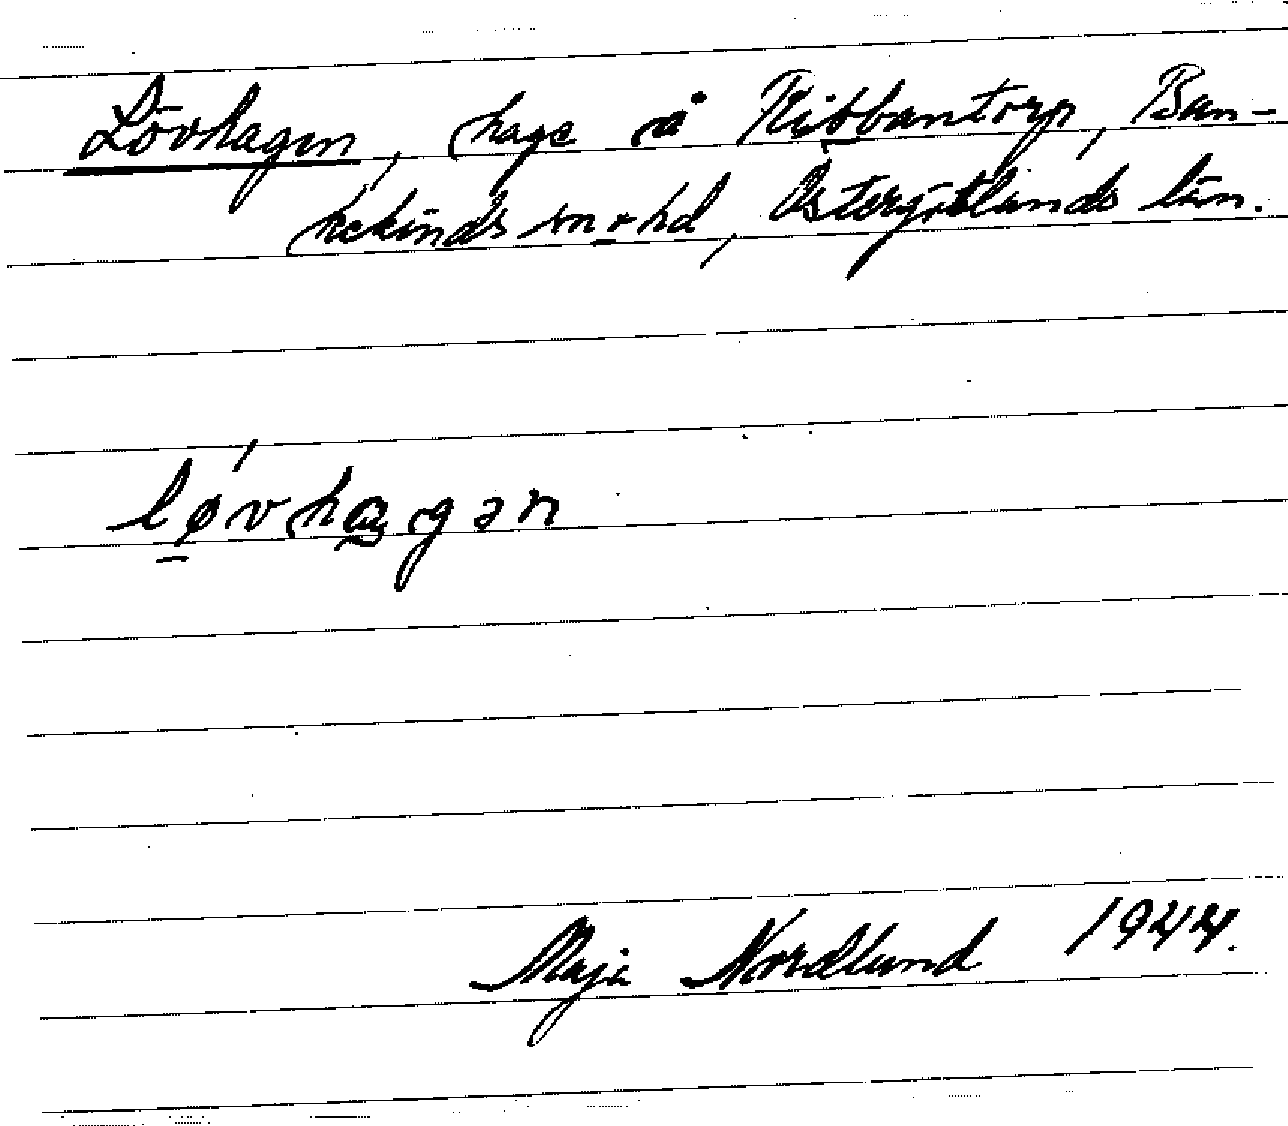 Lövhagen, hage å Ribbantorp, Ban-
kekinds sn o hd, Östergötlands län.
lø̱´vha̱gən
Maja Nordlund 1944.